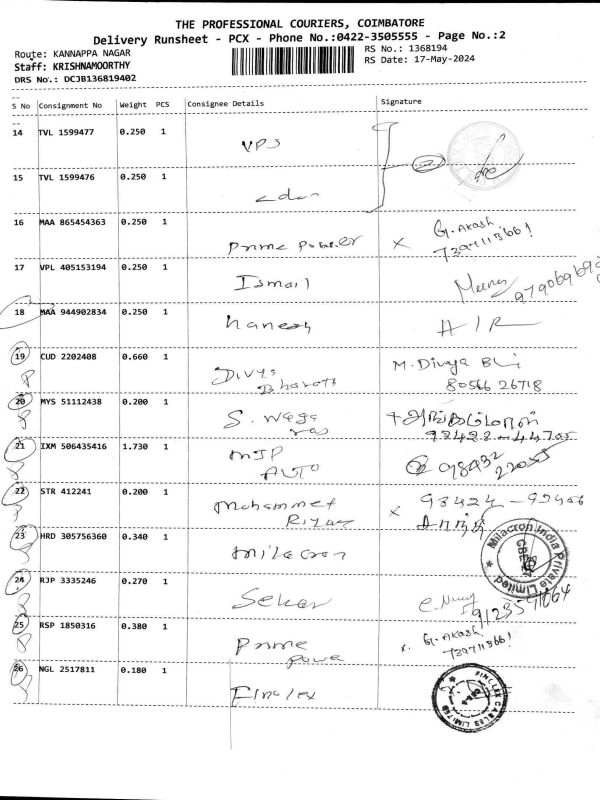 THE PROFESSIONAL COURIERS, COIMBATORE
Delivery Runsheet - PCX - Phone No.:0422-3505555 - Page No.:2
Route: KANNAPPA NAGAR
RS No.: 1368194
Staff: KRISHNAMOORTHY
RS Date: 17-May-2024
DRS No.: DCJB136819402
S No Consignment No Weight PCS Consignee Details Signature
14 TVL 1599477 0.250 1 VPS
15 TVL 1599476 0.250 1
16 MAA 865454363 0.250 1 Prime Power X G. Akash
17 VPL 405153194 0.250 1 Ismail Meena
18 MAA 944902834 0.250 1 Hanesh A/R
19 CUD 2202408 0.660 1 Divya Bharati M. Divya
80566 26718
20 MYS 51112438 0.200 1 S.
21 IXM 506435416 1.730 1 MJP AUTO
22 STR 412241 0.200 1 Mohammet X
23 HRD 305756360 0.340 1 Milacron Milacron India Private Limited
24 RJP 3335246 0.270 1 Sekar
25 RSP 1850316 0.380 1 Prime Powe X. G. Akash
26 NGL 2517811 0.180 1 Finolex FINOLEX CABLES LIMITED